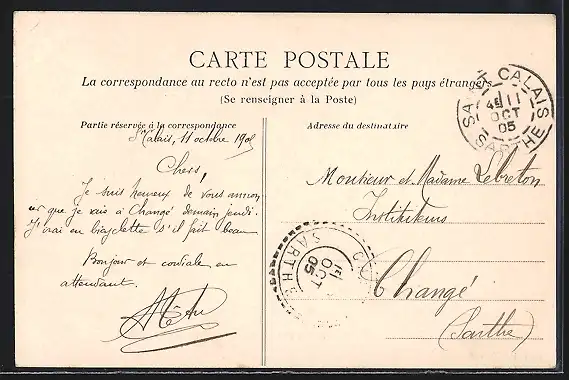 CARTE POSTALE
La correspondance au recto n'est pas acceptée par tous les pays étrangers
(Se renseigner à la Poste)
Partie réservée à la correspondance
Adresse du destinataire
St Calais, 11 octobre 1905
Chers,
Je suis heureux de vous annon
cer que je vais à Changé demain jeudi.
J'irai en bicyclette s'il fait beau
Bonjour et cordiale en
attendant.
Monsieur et Madame Lebreton
Instituteurs
Changé
(Sarthe)
ST CALAIS
4E 11
OCT
05
SARTHE
SARTHE
OCT
05